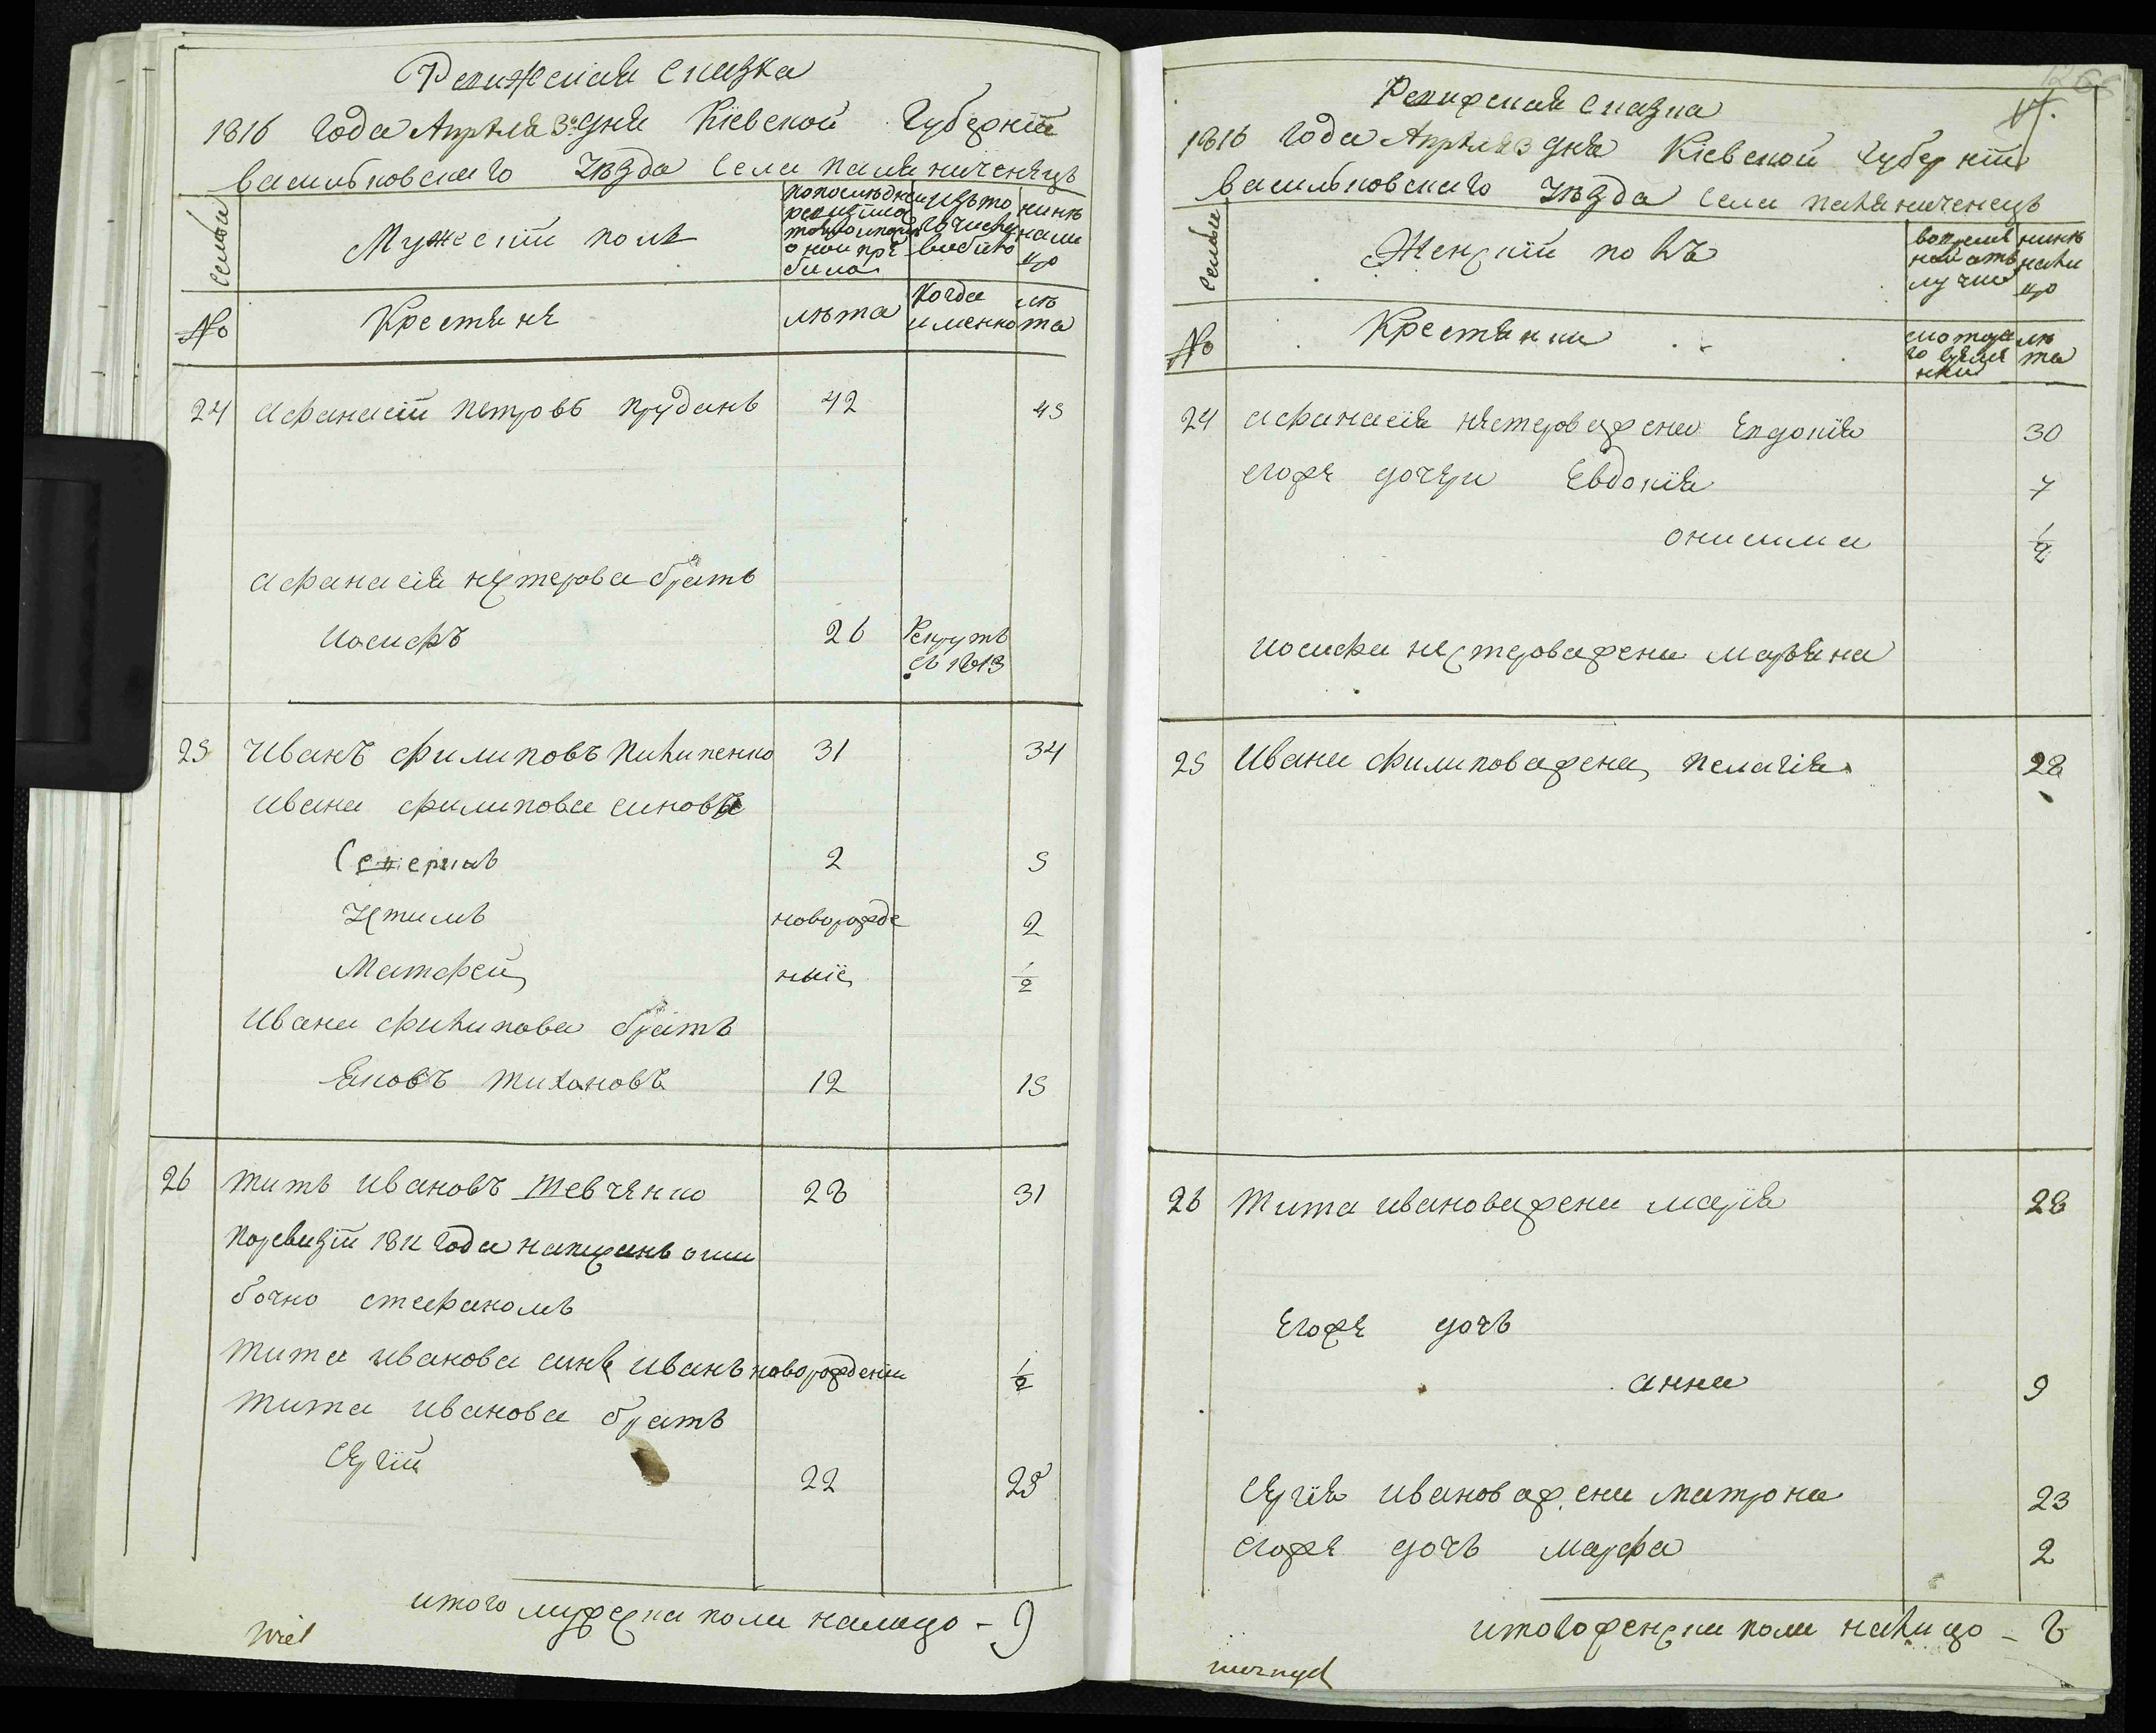 Ревижская сказка
1816 года Апреля 3 дня Кіевской Губерніи
васильковского уезда села паляниченецъ
семьи
Мужескій полъ
по последней ревизіи состояло и после оной прибыло
изъ того числа выбыло
ныне налицо
№
Крестяне
лета
когда именно
лета
24 афанасій петровъ пруданъ 42 45
афанасія нестерова братъ
иосифъ 26 Рекрутъ
въ 1813
25 Иванъ филиповъ пилипенко 31 34
ивана филипова синовя
2 5
новорожде 2
Матфей ние 1/2
Ивана филипова братъ
Яковъ тихоновъ 12 15
26 титъ ивановъ шевченко 28 31
поревизіи 1811 года написанъ оши
бочно стефаномъ
тита иванова синъ иванъ новорожденіи 1/2
тита иванова братъ
Сергій 22 25
итого мужеска пола налицо - 9
1266
Ревижская сказка
1816 года Апреля 3 дня Кіевской губерніи
васильковского уезда села паляниченецъ
семьи
Женскій полъ
во временной отлучке
ныне налицо
№
Крестянки
лета
24 афанасія нестерова жена Евдокія 30
егоже дочери Евдокія 7
онисима 1/2
иосифа нестерова жена маряна
25 Ивана филипова жена пелагія 28
26 Тита иванова жена марія 28
Егоже дочь
анна 9
Сергія иванова жена матрона 23
егоже дочь марфа 2
итого женска пола налицо - 8